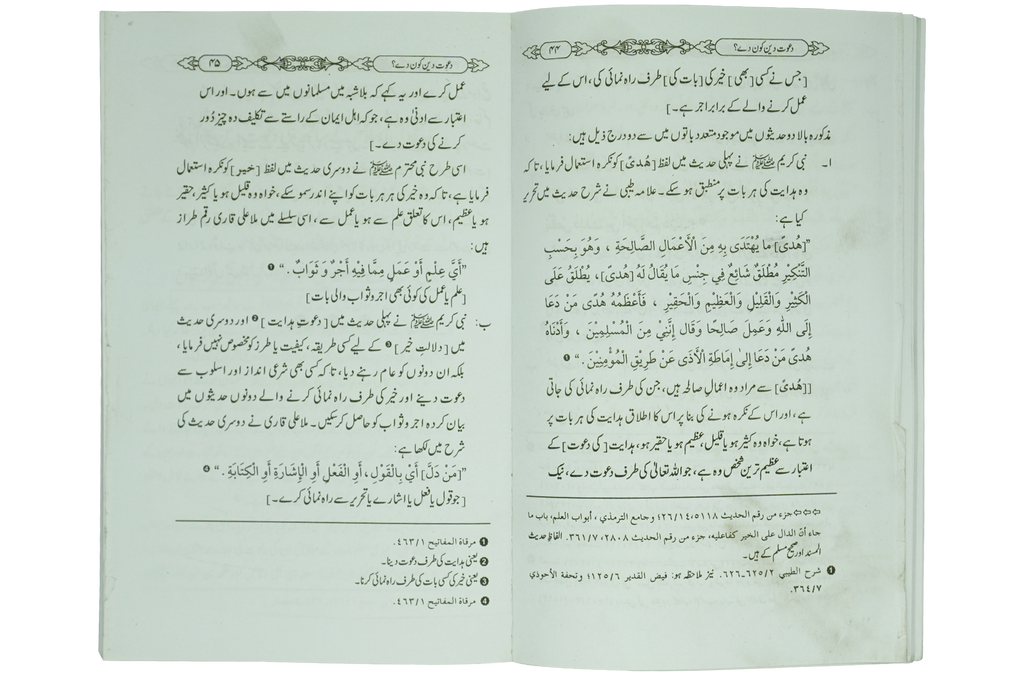 ۴۴
دعوت دین کون دے؟
[جس نے کسی [بھی] خیر کی [بات کی] طرف راہ نمائی کی، اس کے لیے
عمل کرنے والے کے برابر اجر ہے۔]
مذکورہ بالا دو حدیثوں میں موجود متعدد باتوں میں سے دو درج ذیل ہیں:
ا۔ نبی کریم ﷺ نے پہلی حدیث میں لفظ [هُدًى] کو نکرہ استعمال فرمایا، تاکہ
وہ ہدایت کی ہر بات پر منطبق ہو سکے۔ علامہ طیبی نے شرح حدیث میں تحریر
کیا ہے:
”[هُدًى] ما يُهْتَدَى بِهِ مِنَ الْأَعْمَالِ الصَّالِحَةِ ، وَهُوَ بِحَسْبِ
التَّنْكِيْرِ مُطْلَقٌ شَائِعٌ فِي جِنْسِ مَا يُقَالُ لَهُ [هُدًى]، يُطْلَقُ عَلَى
الْكَثِيْرِ وَالْقَلِيْلِ وَالْعَظِيْمِ وَالْحَقِيْرِ ، فَأَعْظَمُهُ هُدًى مَنْ دَعَا
إِلَى اللّٰهِ وَعَمِلَ صَالِحًا وَقَال إِنَّنِيْ مِنَ الْمُسْلِمِيْنَ ، وَأَدْنَاهُ
هُدًى مَنْ دَعَا إِلىٰ إِمَاطَةِ الْأَذَى عَنْ طَرِيْقِ الْمُؤْمِنِيْنَ .“ ❶
[[هُدًى] سے مراد وہ اعمالِ صالحہ ہیں، جن کی طرف راہ نمائی کی جاتی
ہے، اور اس کے نکرہ ہونے کی بنا پر اس کا اطلاق ہدایت کی ہر بات پر
ہوتا ہے، خواہ وہ کثیر ہو یا قلیل، عظیم ہو یا حقیر ہو، ہدایت [کی دعوت] کے
اعتبار سے عظیم ترین شخص وہ ہے، جو اللہ تعالیٰ کی طرف دعوت دے، نیک
⇦⇦⇦ جزء من رقم الحديث ٥١١٨، ٢٦/١٤؛ وجامع الترمذي ، أبواب العلم، باب ما
جاء أنّ الدال على الخير كفاعليه، جزء من رقم الحديث ٢٨٠٨، ٣٦١/٧. الفاظِ حدیث
المسند اور صحیح مسلم کے ہیں۔
❶ شرح الطيبي ٦٢٥/٢-٦٢٦. نیز ملاحظہ ہو: فيض القدير ١٢٥/٦؛ وتحفة الأحوذي
٣٦٤/٧.
۴۵
دعوت دین کون دے؟
عمل کرے اور یہ کہے کہ بلاشبہ میں مسلمانوں میں سے ہوں۔ اور اس
اعتبار سے ادنیٰ وہ ہے، جو کہ اہل ایمان کے راستے سے تکلیف دہ چیز دُور
کرنے کی دعوت دے۔]
اسی طرح نبی محترم ﷺ نے دوسری حدیث میں لفظ [خیر] کو نکرہ استعمال
فرمایا ہے، تاکہ وہ خیر کی ہر ہر بات کو اپنے اندر سمو سکے، خواہ وہ قلیل ہو یا کثیر، حقیر
ہو یا عظیم، اس کا تعلق علم سے ہو یا عمل سے ، اسی سلسلے میں ملا علی قاری رقم طراز
ہیں:
”أَيَّ عِلْمٍ أَوْ عَمَلٍ مِمَّا فِيْهِ أَجْرٌ وَ ثَوَابٌ .“ ❶
[علم یا عمل کی کوئی بھی اجر و ثواب والی بات]
ب: نبی کریم ﷺ نے پہلی حدیث میں [دعوتِ ہدایت] ❷ اور دوسری حدیث
میں [دلالتِ خیر] ❸ کے لیے کسی طریقہ، کیفیت یا طرز کو مخصوص نہیں فرمایا،
بلکہ ان دونوں کو عام رہنے دیا، تاکہ کسی بھی شرعی انداز اور اسلوب سے
دعوت دینے اور خیر کی طرف راہ نمائی کرنے والے دونوں حدیثوں میں
بیان کردہ اجر و ثواب کو حاصل کر سکیں۔ ملا علی قاری نے دوسری حدیث کی
شرح میں لکھا ہے:
”[مَنْ دَلَّ] أَيْ بِالْقَوْلِ ، أَوِ الْفَعْلِ أَوِ الْإِشَارَةِ أَوِ الْكِتَابَةِ .“ ❹
[جو قول یا فعل یا اشارے یا تحریر سے راہ نمائی کرے۔]
❶ مرقاة المفاتيح ٤٦٣/١.
❷ یعنی ہدایت کی طرف دعوت دینا۔
❸ یعنی خیر کی کسی بات کی طرف راہ نمائی کرنا۔
❹ مرقاة المفاتيح ٤٦٣/١.